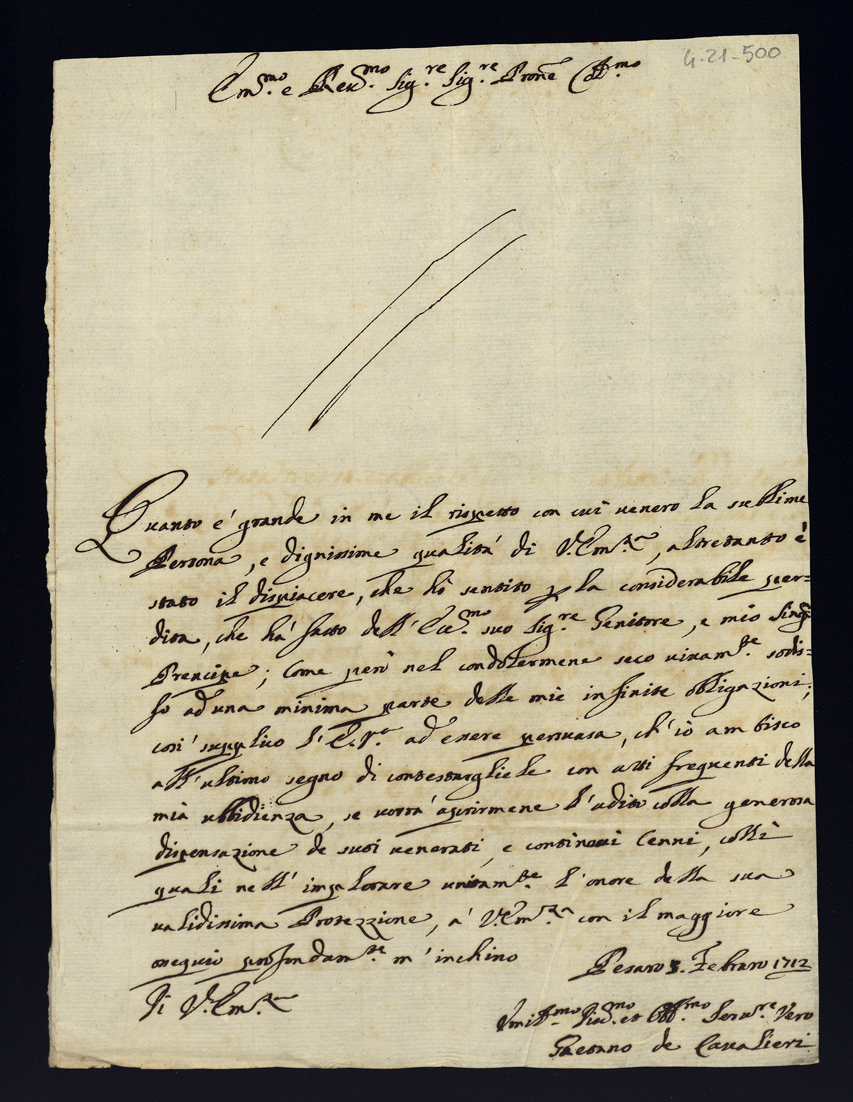 4-21-500
Em.mo e Reu.mo Sig.re Sig.re Prone
Quanto é grande in me il rispetto con cui uenero la sublime
Persona, e dignissime qualità di V. Em.za, altretanto è
stato il dispiacere, che hò sentito p la considerabile per-
dita, che hà fatto dell' Ecc.mo suo Sig.re Genitore, e mio
Prencipe; Come però nel condolermene seco uiuam.te sodis=
fo ad una minima parte delle mie infinite obligazioni;
così supplico l' E. V. ad essere persuasa, ch' iò ambisco
all' ultimo segno di contestargliele con atti frequenti della
mià ubbidienza, se uorrà aprirmene l' adito colla generosa
dispensazione de suoi uenerati, e continoui Cenni, collì
quali nell' implorare unitam.te l' onore della sua
ualidissima Protezzione, a' V. Em.za con il maggiore
ossequio profondam.te m' inchino
Pesaro 5. Febraro 1712
Di V. Em.za
Vmil.mo Diu.mo et Obb.mo Seru.re Vero
Gaetano de Caualieri